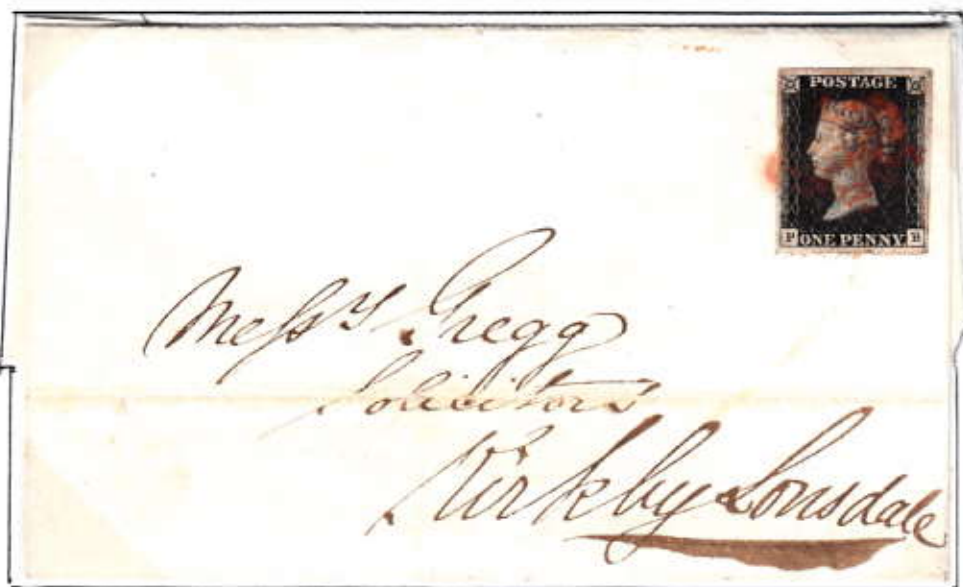 POSTAGE
P ONE PENNY B
Messrs Gregg
Solicitors
Kirkby Lonsdale